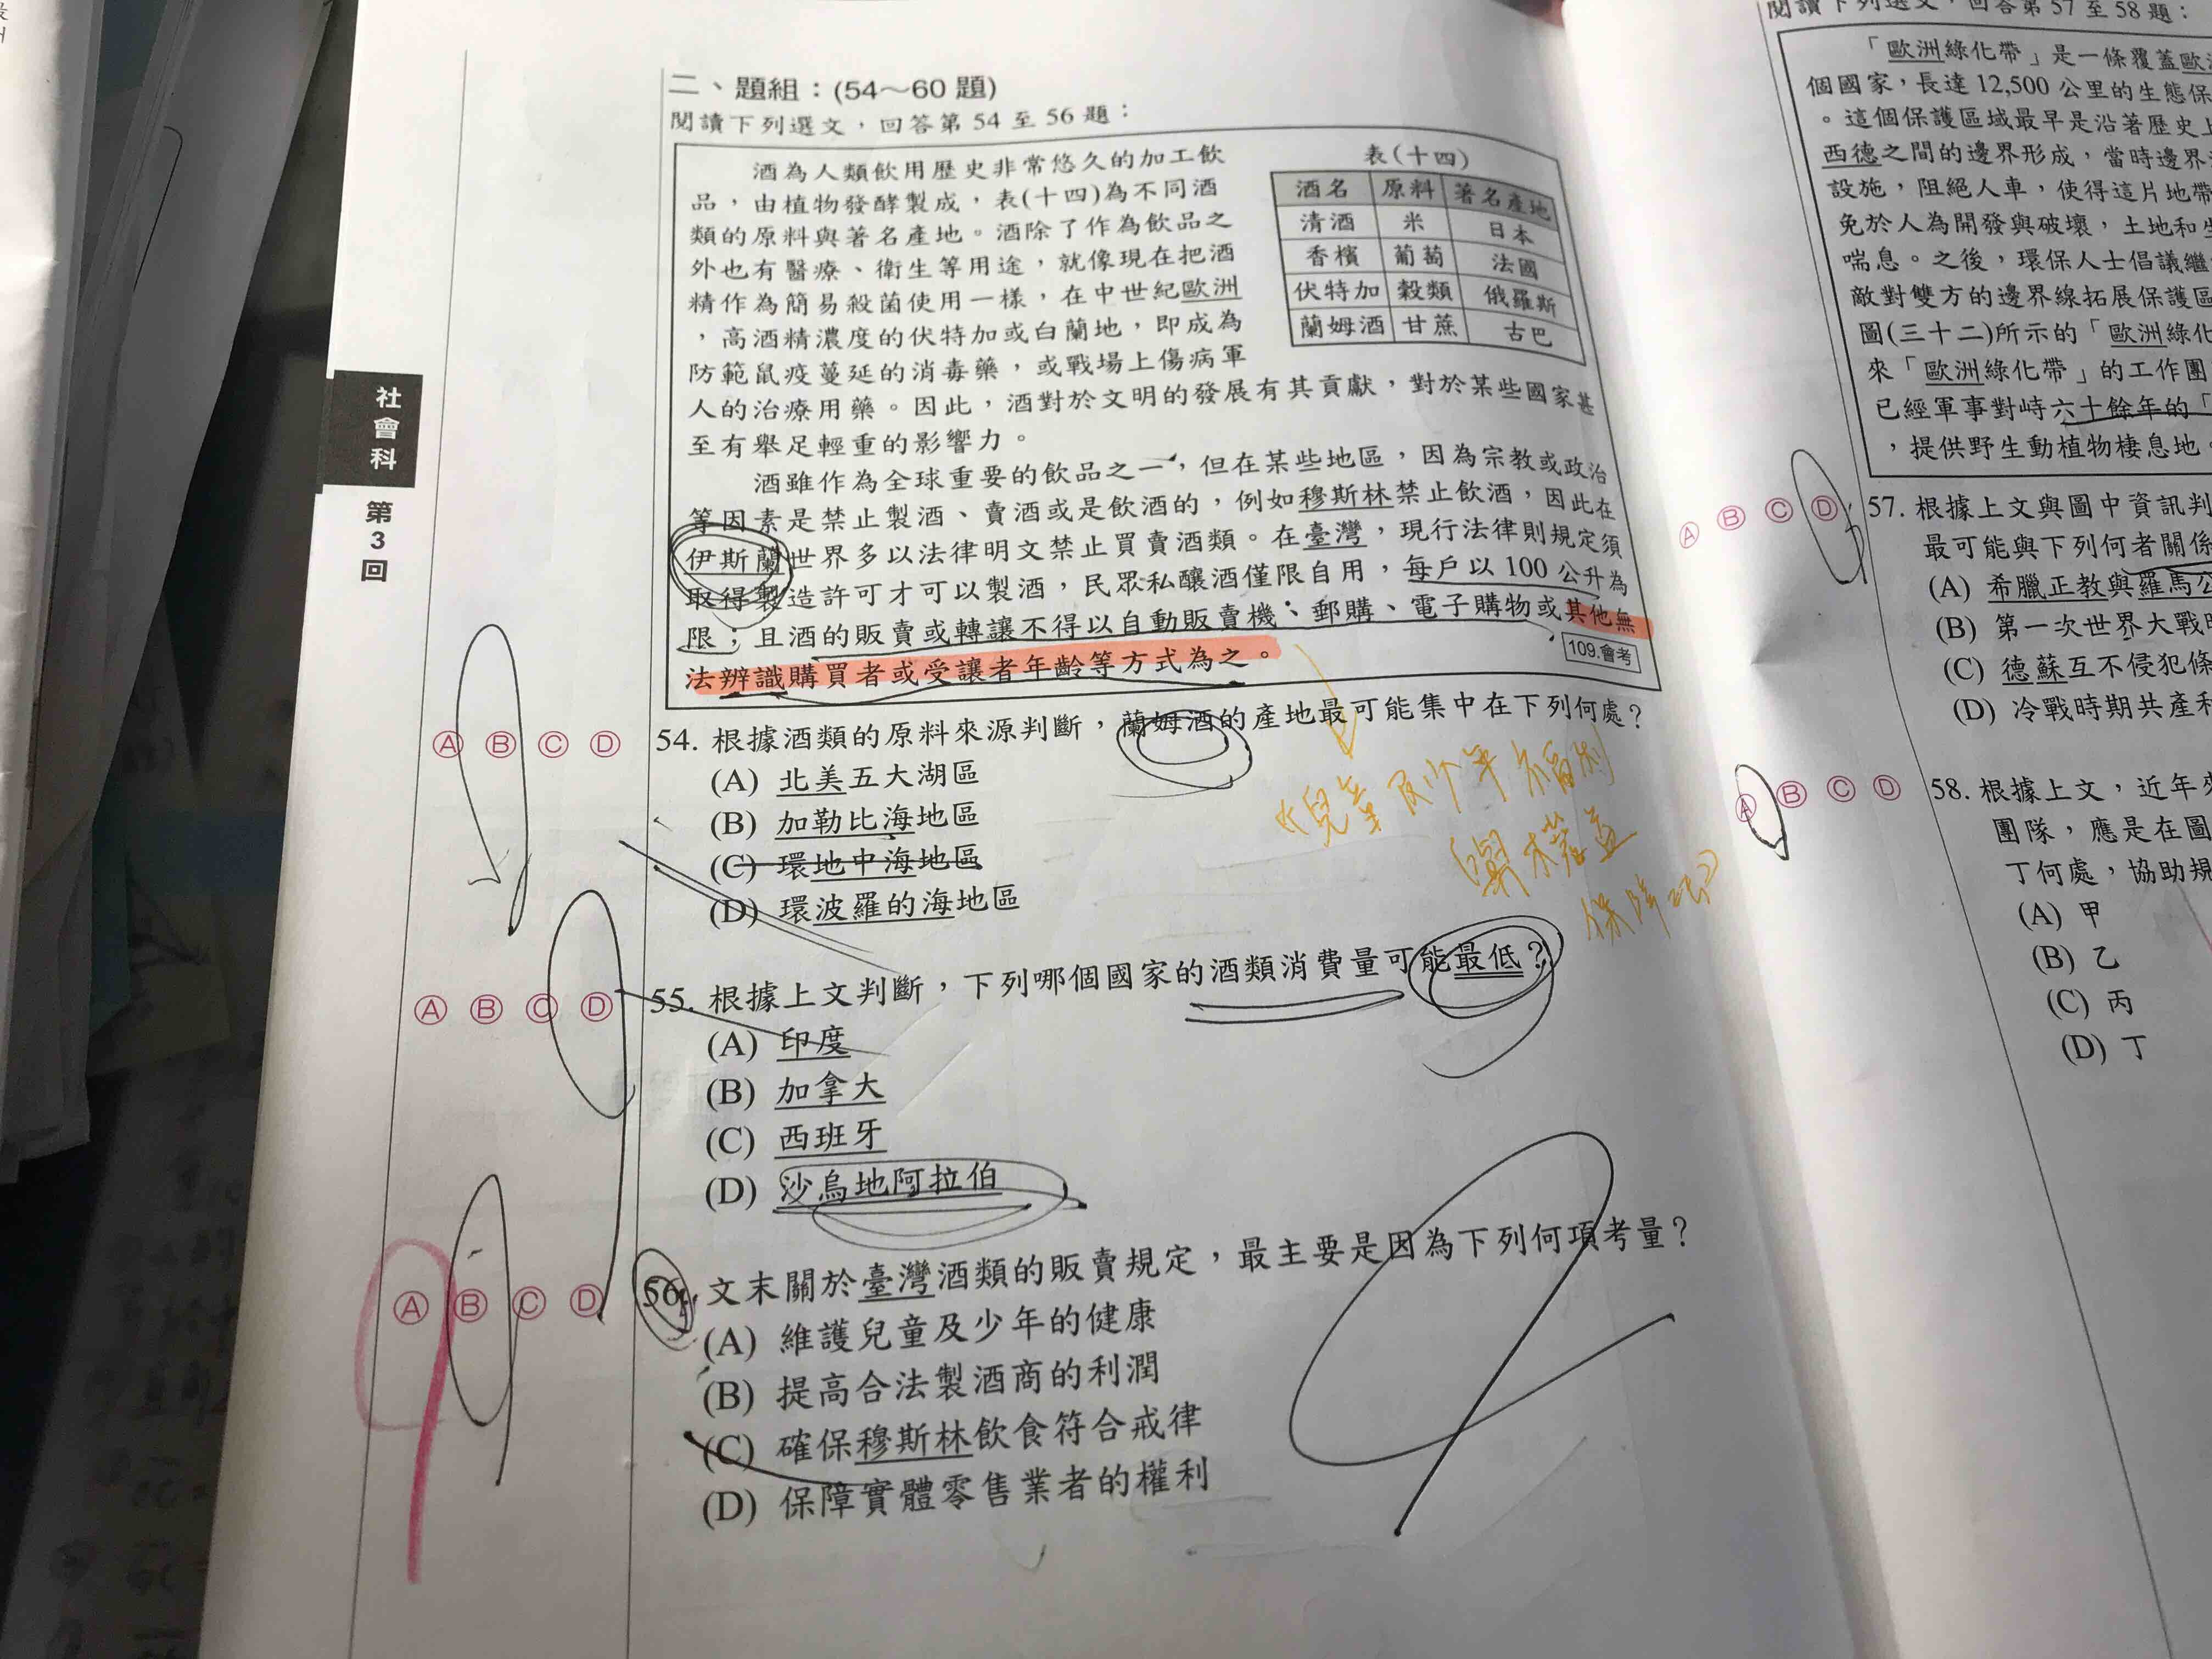 社會科
第3回
二、題組：(54～60 題)
閱讀下列選文，回答第 54 至 56 題：
酒為人類飲用歷史非常悠久的加工飲
品，由植物發酵製成，表(十四)為不同酒
類的原料與著名產地。酒除了作為飲品之
外也有醫療、衛生等用途，就像現在把酒
精作為簡易殺菌使用一樣，在中世紀歐洲
，高酒精濃度的伏特加或白蘭地，即成為
防範鼠疫蔓延的消毒藥，或戰場上傷病軍
人的治療用藥。因此，酒對於文明的發展有其貢獻，對於某些國家甚
至有舉足輕重的影響力。
表(十四)
酒名 原料 著名產地
清酒 米 日本
香檳 葡萄 法國
伏特加 穀類 俄羅斯
蘭姆酒 甘蔗 古巴
酒雖作為全球重要的飲品之一，但在某些地區，因為宗教或政治
等因素是禁止製酒、賣酒或是飲酒的，例如穆斯林禁止飲酒，因此在
伊斯蘭世界多以法律明文禁止買賣酒類。在臺灣，現行法律則規定須
取得製造許可才可以製酒，民眾私釀酒僅限自用，每戶以 100 公升為
限；且酒的販賣或轉讓不得以自動販賣機、郵購、電子購物或其他無
法辨識購買者或受讓者年齡等方式為之。
109.會考
Ⓐ Ⓑ Ⓒ Ⓓ 54. 根據酒類的原料來源判斷，蘭姆酒的產地最可能集中在下列何處？
(A) 北美五大湖區
(B) 加勒比海地區
(C) 環地中海地區
(D) 環波羅的海地區
《兒童及少年福利
與權益
保障法》
Ⓐ Ⓑ Ⓒ Ⓓ 55. 根據上文判斷，下列哪個國家的酒類消費量可能最低？
(A) 印度
(B) 加拿大
(C) 西班牙
(D) 沙烏地阿拉伯
Ⓐ Ⓑ Ⓒ Ⓓ 56. 文末關於臺灣酒類的販賣規定，最主要是因為下列何項考量？
(A) 維護兒童及少年的健康
(B) 提高合法製酒商的利潤
(C) 確保穆斯林飲食符合戒律
(D) 保障實體零售業者的權利
閱讀下列選文，回答第 57 至 58 題：
「歐洲綠化帶」是一條覆蓋歐
個國家，長達 12,500 公里的生態保
。這個保護區域最早是沿著歷史上
西德之間的邊界形成，當時邊界
設施，阻絕人車，使得這片地帶
免於人為開發與破壞，土地和
喘息。之後，環保人士倡議繼
敵對雙方的邊界線拓展保護區
圖(三十二)所示的「歐洲綠化
來「歐洲綠化帶」的工作團
已經軍事對峙六十餘年的「
，提供野生動植物棲息地。
Ⓐ Ⓑ Ⓒ Ⓓ 57. 根據上文與圖中資訊判
最可能與下列何者關係
(A) 希臘正教與羅馬公
(B) 第一次世界大戰時
(C) 德蘇互不侵犯條
(D) 冷戰時期共產和
Ⓐ Ⓑ Ⓒ Ⓓ 58. 根據上文，近年來
團隊，應是在圖
丁何處，協助規
(A) 甲
(B) 乙
(C) 丙
(D) 丁